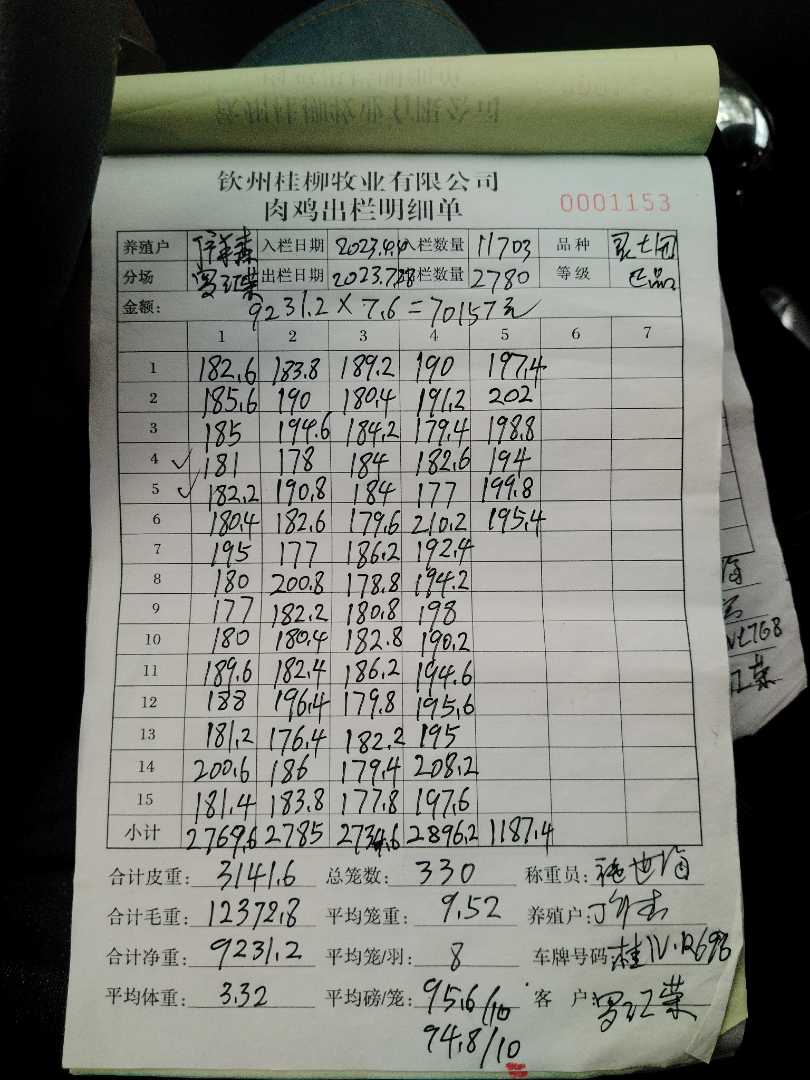 钦州桂柳牧业有限公司
肉鸡出栏明细单 0001153
养殖户 入栏日期 2023.4. 入栏数量 11703 品种
分场 罗江荣 出栏日期 2023.7.28 出栏数量 2780 等级 正品
金额: 9231.2 × 7.6 = 70157元
1 2 3 4 5 6 7
1 182.6 183.8 189.2 190 197.4
2 185.6 190 180.4 191.2 202
3 185 194.6 184.2 179.4 198.8
4 181 178 184 182.6 194
5 182.2 190.8 184 177 199.8
6 180.4 182.6 179.6 210.2 195.4
7 195 177 186.2 192.4
8 180 200.8 178.8 194.2
9 177 182.2 180.8 198
10 180 180.4 182.8 190.2
11 189.6 182.4 186.2 194.6
12 188 196.4 179.8 195.6
13 181.2 176.4 182.2 195
14 200.6 186 179.4 208.2
15 181.4 183.8 177.8 197.6
小计 2769.6 2785 2734.6 2896.2 1187.4
合计皮重: 3141.6 总笼数: 330 称重员:
合计毛重: 12372.8 平均笼重: 9.52 养殖户:
合计净重: 9231.2 平均笼/羽: 8 车牌号码:
平均体重: 3.32 平均磅/笼: 95.6/10 客 户: 罗江荣
94.8/10